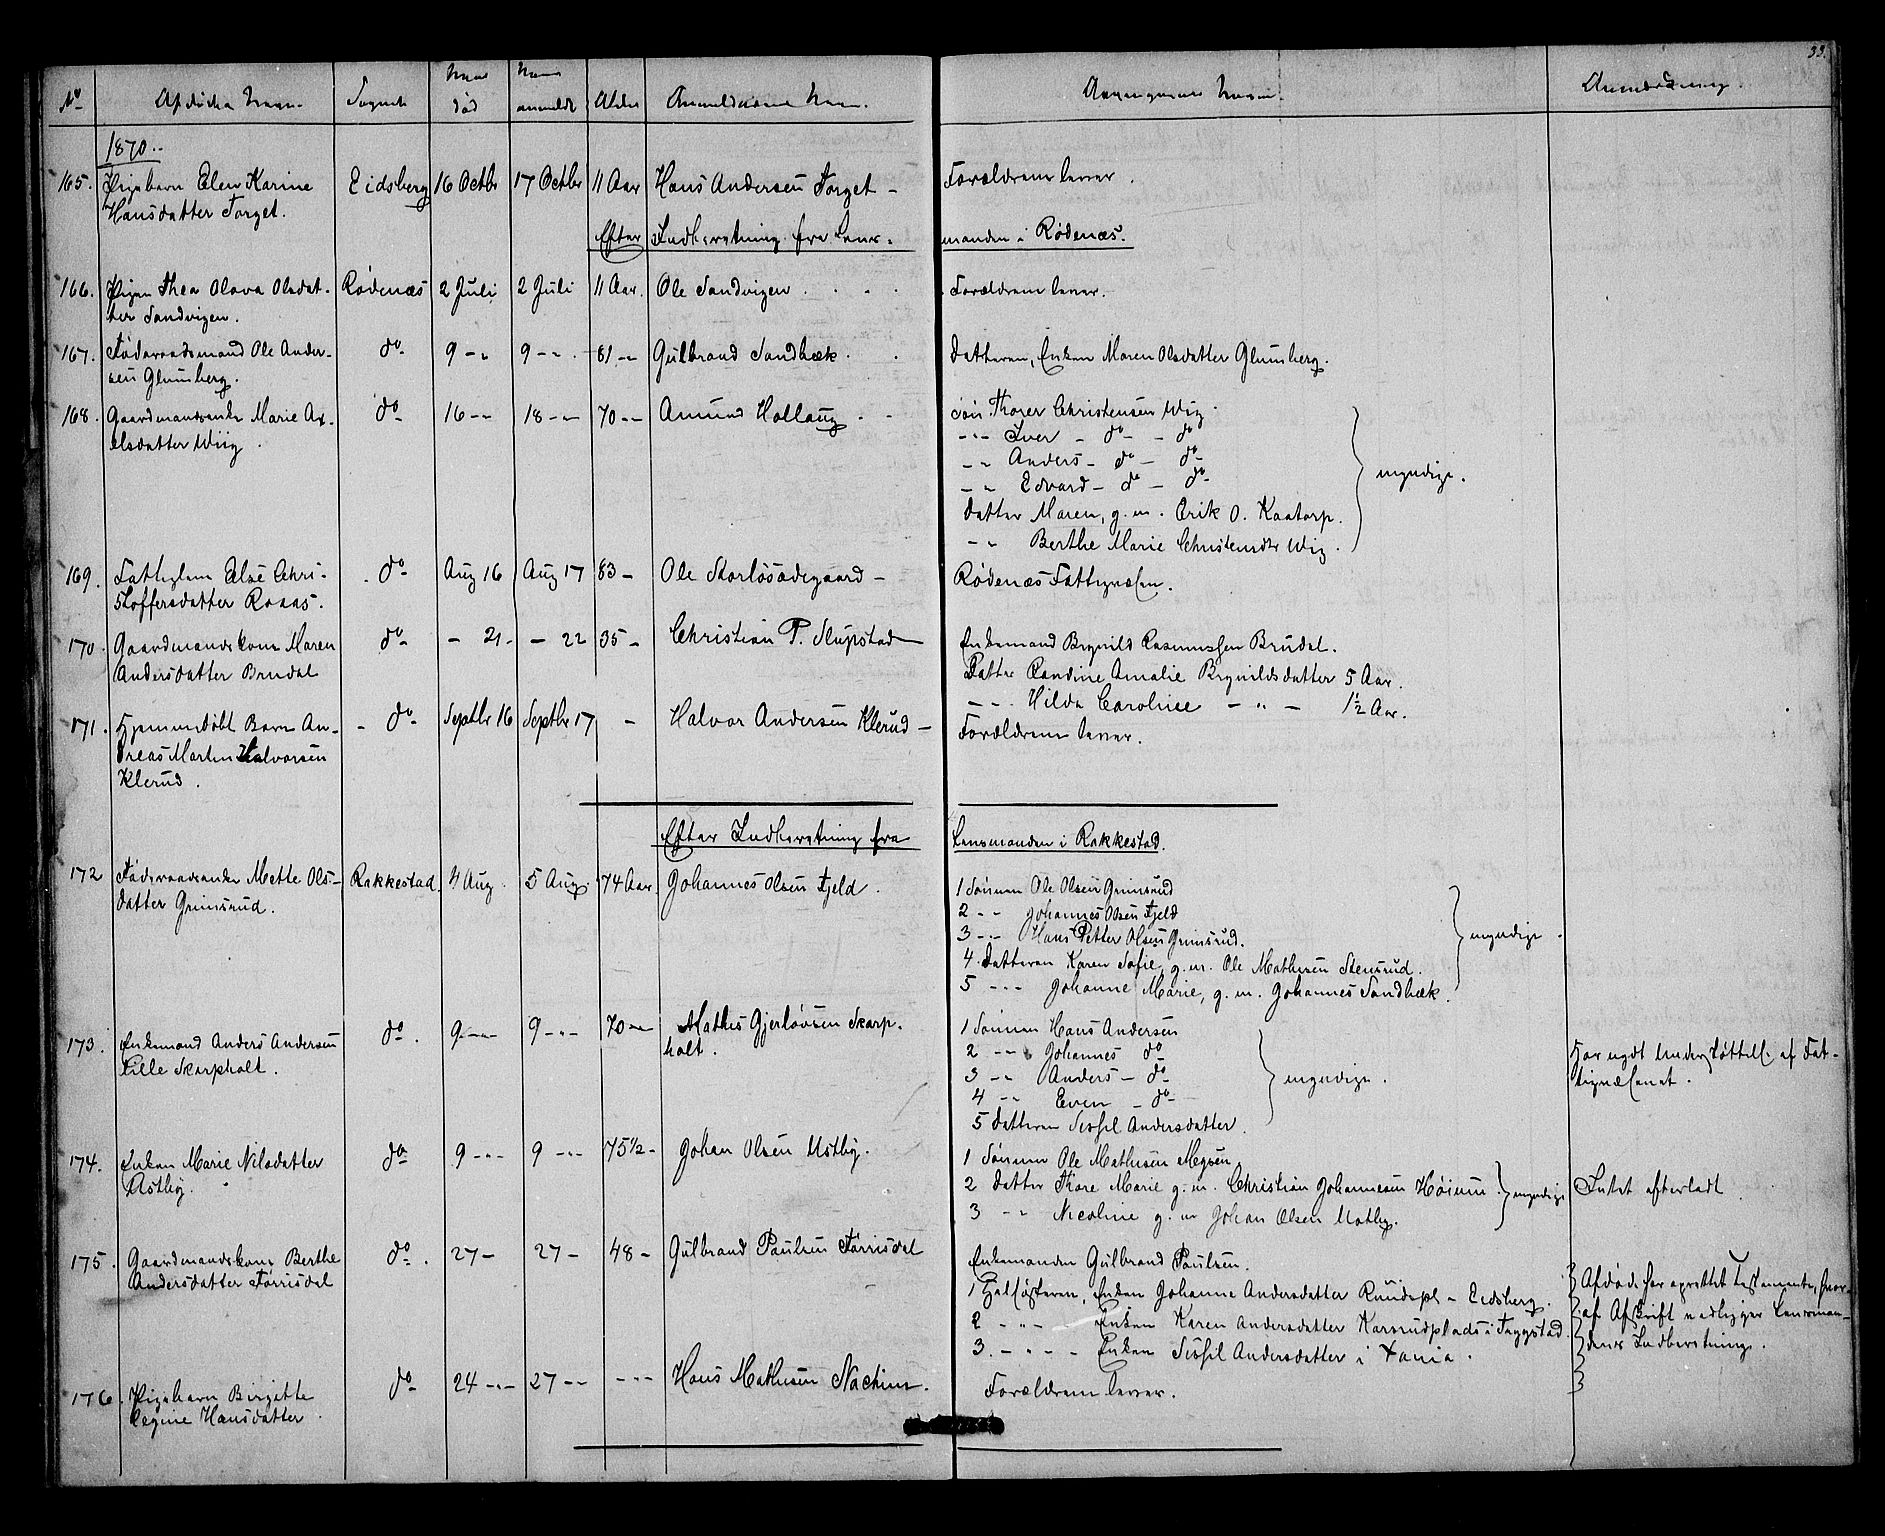 33.
No Afdødes Navn. Sogned Naar død Naar anmeldt Alder Anmelderens Navn. Arvingernes Navne. Anmærkning.
1870..
165. Pigebarn Elen Karine Eidsberg 16 Octbr 17 Octbr 11 Aar Hans Andersen Torget - Forældrene lever.
Hansdatter Torget.
Efter Indberetning fra Lens- manden i Rødenæs.
166. Pigen Thea Olava Olsdat- Rødenæs 2 Juli 2 Juli 11 Aar. Ole Sandvigen . . . . Forældrene lever.
ter Sandvigen.
167. Føderaadsmand Ole Ander- do 9 -"- 9 -"- 81 -"- Gulbrand Sandbæk. . Datteren, Enken Maren Olsdatter Glumberg.
sen Glumberg.
168. Gaardmandsenke Marie Ax- do 16 -"- 18 -"- 70 -"- Amund Hollaug . . Søn Thorer Christensen Wiig.
elsdatter Wiig. -"- Iver - do - do
-"- Anders - do - do
-"- Edvard - do - do myndige.
Datter Maren, g. m. Erik O. Kaatorp.
-"- Berthe Marie Christensdtr Wiig.
169. Fattiglem Else Chri- do Aug 16 Aug 17 83 - Ole Storløsødegaard - Rødenæs Fattigvæsen.
stoffersdatter Raaas.
170. Gaardmandskone Maren do - 21 - - 22 35 - Christian P. Slupstad Enkemand Brynild Rasmussen Brudal.
Andersdatter Brudal Datter Randine Amalie Brynildsdatter 5 Aar.
-"- Hilda Caroline - " - 1½ Aar.
171. Hjemmedøbt Barn An- do Septbr 16 Septbr 17 - Halvor Andersen Klerud - Forældrene lever.
dreas Martin Halvorsen
Klerud.
Efter Indberetning fra Lensmanden i Rakkestad.
172 Føderaadsenke Mette Ols- Rakkestad. 4 Aug. 5 Aug. 74 Aar. Johannes Olsen Fjeld. 1 Sønnen Ole Olsen Grimsrud
datter Grimsrud. 2 -"- Johannes Olsen Fjeld
3 -"- Hans Petter Olsen Grimsrud. myndige.
4. Datteren Karen Sofie, g. m. Ole Mathisen Stensrud.
5 -"- Johanne Marie, g. m. Johannes Sandbæk.
173. Enkemand Anders Andersen do. 9 -"- 9 -"- 70 -"- Mathis Gjerløvsen Skarp- 1 Sønnen Hans Andersen
Lille Skarpholt. holt. 2 -"- Johannes do Har nydt Understøttelse af Fat-
3 -"- Anders - do myndige. tigvæsenet.
4 -"- Even - do
5 Datteren Sissel Andersdatter.
174. Enken Marie Nilsdatter do 9 -"- 9 -"- 75½ - Johan Olsen Ustby. 1 Sønnen Ole Mathisen Mysen
Ustby. 2 Datter Thore Marie g. m. Christian Johannesen Höieum. myndige Intet efterladt.
3 -"- Nicoline g. m Johan Olsen Ustby.
175. Gaardmandskone Berthe do. 27 - 27 - 48 - Gulbrand Paulsen Tørrisdal Enkemanden Gulbrand Paulsen.
Andersdatter Tørrisdal 1 Halvsøsteren, Enken Johanne Andersdatter Ruudspl - Eidsberg. Afdøde har oprettet Testamente, hvor-
2 -"- Enken Karen Andersdatter Karsrudplads i Taggstad. af Afskrift vedligger Lensman-
3. -"- Enken Sissel Andersdatter i dens Indberetning.
176. Pigebarn Birgitte do 24 -"- 27 -"- -"- Hans Mathisen Nachim. Forældrene lever.
Regine Hansdatter.